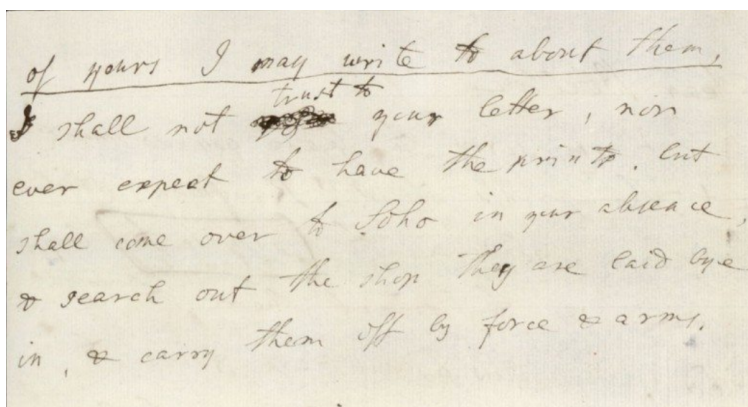 of yours I may write to about them,
trust to
I shall not your letter, nor
ever expect to have the prints. but
shall come over to Soho in your absence,
& search out the shop they are laid bye
in, & carry them off by force & arms.